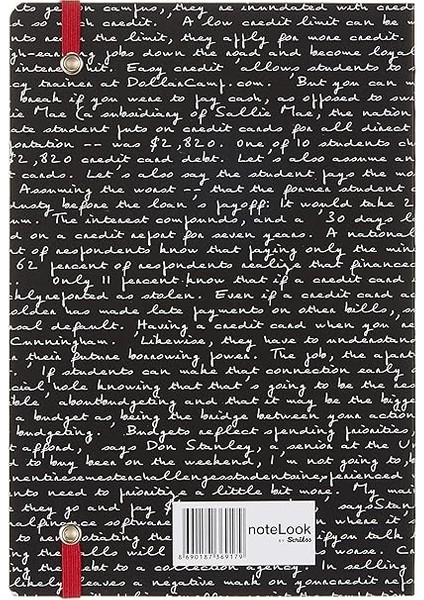 to campus, they're inundated with credit
A low credit limit can be
the limit, they apply for more credit.
jobs down the road and become loyal
Easy credit allows students to
cy trainer at DollarCamp.com. 'But you can
break if you were to pay cash, as opposed to
ie Mae (a subsidiary of Sallie Mae, the nation
ate student puts on credit cards for all direct
portation -- was $2,820. One of 10 students
$2,820 credit card debt. Let's also assume an
cards. Let's also say the student pays the
Assuming the worst -- that the former student
before the loan's payoff: It would take 2
The interest compounds, and a '30 days
d on a credit report for seven years. A national
t of respondents know that paying only the
62 percent of respondents realize that
Only 11 percent know that if a credit card
reported as stolen. Even if a credit card
has made late payments on other bills,
sal default. 'Having a credit card when you
Cunningham. 'Likewise, they have to understand
their future borrowing power. The job, the
'If students can make that connection early
cial hole knowing that that's going to be the
ible' aboutbudgeting and that it may be the
a budget as being the bridge between your action
budgeting. 'Budgets reflect spending priorities
t afford, says Don Stanley, a senior at the
d to buy been on the weekend, I'm not going to
nts need to prioritize a little bit more. My
they go and pay says Stan
software where it
to renegotiating the
the bills will
the debt to a collection agency. In selling
leaves a negative mark on yourcredit
noteLook
BY Scrikss
8690187369179